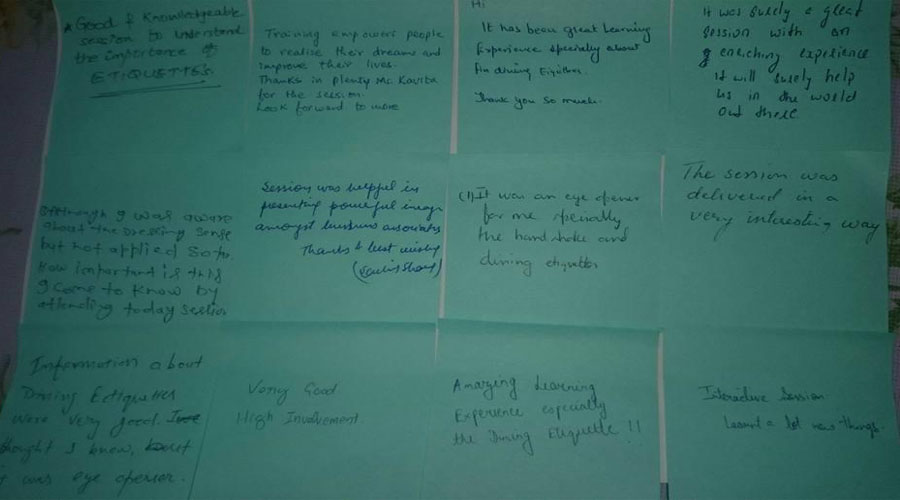 * Good & Knowledgeable
session to understand
the importance of
ETIQUETTE's.
Training empowers people
to realise their dreams and
improve their lives.
Thanks in plenty Ms. Kavita
for the session.
Look forward to more
Hi
It has been great learning
Experience specially about
dining
Thank you so much.
It was surely a great
session with an
enriching experience
it will surely help
us in the world
out there
Although I was aware
about the Dressing sense
but not applied
How important is this
I come to know by
attending today session
Session was helpful in
presenting powerful image
amongst business associates
Thanks & best wishes
(1) It was an eye opener
for me specially
the handshake and
dining etiquettes
The session was
delivered in a
very interesting way
Information about
Dining Ettiquettes
were very good.
thought I knew,
it was eye opener.
Very Good
High Involvement
Amazing Learning
Experience especially
the Dining Etiquette !!
Interactive Session
Learnt a lot new things.